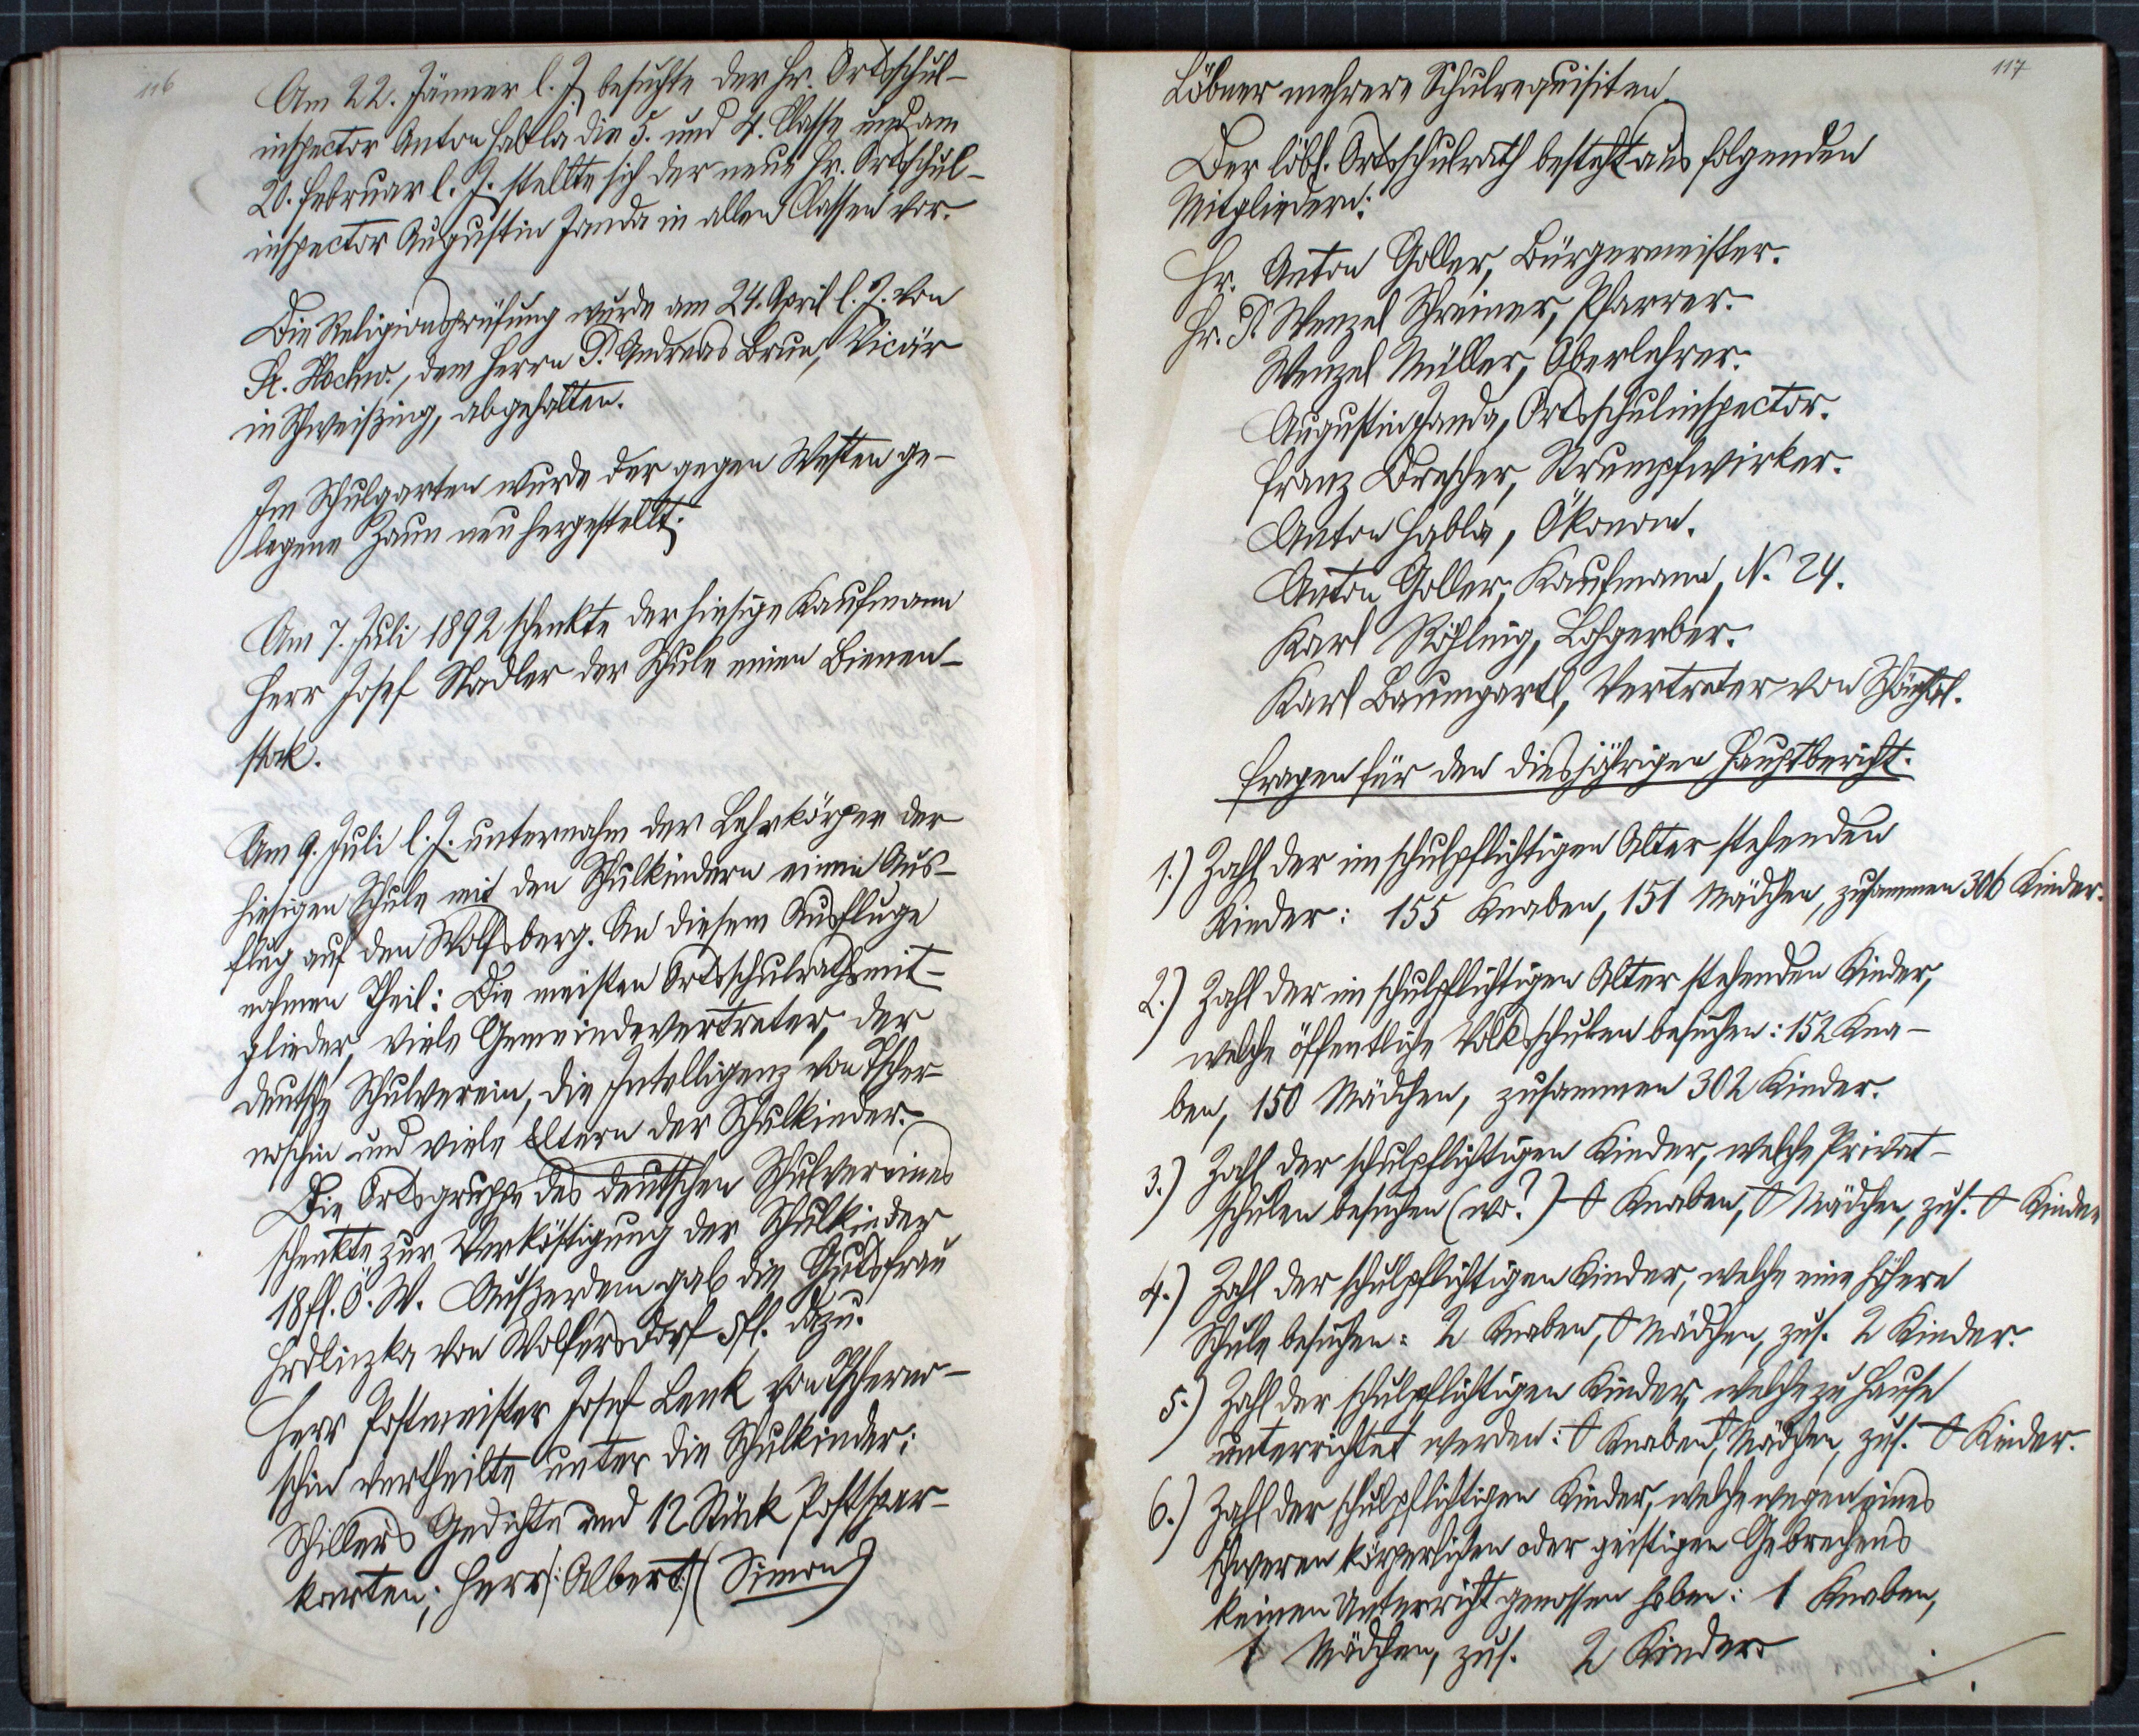 116
Am 22. Jänner l. J. besuchte der Hr. Ortsschul-
inspector Anton Habla die 5. und 4. Classe und am
20. Februar l. J. stellte sich der neue Hr. Ortsschul-
inspector Augustin Janda in allen Classen vor.
Die Religionsprüfung wurde am 24. April l. J. von
Sr. Hochw., dem Herrn P. Andreas Brun, Vicär
in Schweißing, abgehalten.
Im Schulgarten wurde der gegen Westen ge-
legene Zaun neu hergestellt;
Am 7. Juli 1892 schenkte der hiesige Kaufmann
Herr Josef Stadler der Schule einen Bienen-
stok.
Am 9. Juli l. J. unternahm der Lehrkörper der
hiesigen Schule mit den Schulkindern einen Aus-
flug auf den Wolfsberg. An diesem Ausfluge
nahmen Theil: Die meisten Ortsschulrathsmit-
glieder, viele Gemeindevertreter, der
deutsche Schulverein, die Intelligenz von Tscher-
noschin und viele Eltern der Schulkinder.
Die Ortsgruppe des deutschen Schulvereines
schenkte zur Verköstigung der Schulkinder
18 fl. Ö. W. Außerdem gab die Gutsfrau
Hrdliczka von Wolfersdorf 5 fl. dazu.
Herr Postmeister Josef Lenk von Tscherno-
schin vertheilte unter die Schulkinder:
Schillers Gedichte und 12 Stück Postspar-
karten; Herr |: Albert :| (Simon)
117
Löbner mehrere Schulrequisiten.
Der löbl. Ortsschulrath besteht aus folgenden
Mitgliedern:
Hr. Anton Goller, Bürgermeister.
Hr. P. Wenzel Schreiner, Pfarrer.
Wenzel Müller, Oberlehrer.
Augustin Janda, Ortsschulinspector.
Franz Drescher, Strumpfwirker.
Anton Habla, Ökonom.
Anton Goller, Kaufmann, N. 24.
Karl Röhling, Lohgerber.
Karl Baumgartl, Vertreter von
Fragen für den diesjährigen Hauptbericht.
1.) Zahl der im schulpflichtigen Alter stehenden
Kinder: 155 Knaben, 151 Mädchen, zusammen 306 Kinder.
2.) Zahl der im schulpflichtigen Alter stehenden Kinder,
welche öffentliche Volksschulen besuchen: 152 Kna-
ben, 150 Mädchen, zusammen 302 Kinder.
3.) Zahl der schulpflichtigen Kinder, welche Privat-
schulen besuchen (wo?) 0 Knaben, 0 Mädchen, zus. 0 Kinder
4.) Zahl der schulpflichtigen Kinder, welche eine höhere
Schule besuchen: 2 Knaben, 0 Mädchen, zus. 2 Kinder.
5.) Zahl der schulpflichtigen Kinder, welche zu Hause
unterrichtet werden: 0 Knaben, 0 Mädchen, zus. 0 Kinder.
6.) Zahl der schulpflichtigen Kinder, welche wegen eines
schweren körperlichen oder geistigen Gebrechens
keinen Unterricht genossen haben: 1 Knaben,
1 Mädchen, zus. 2 Kinder.